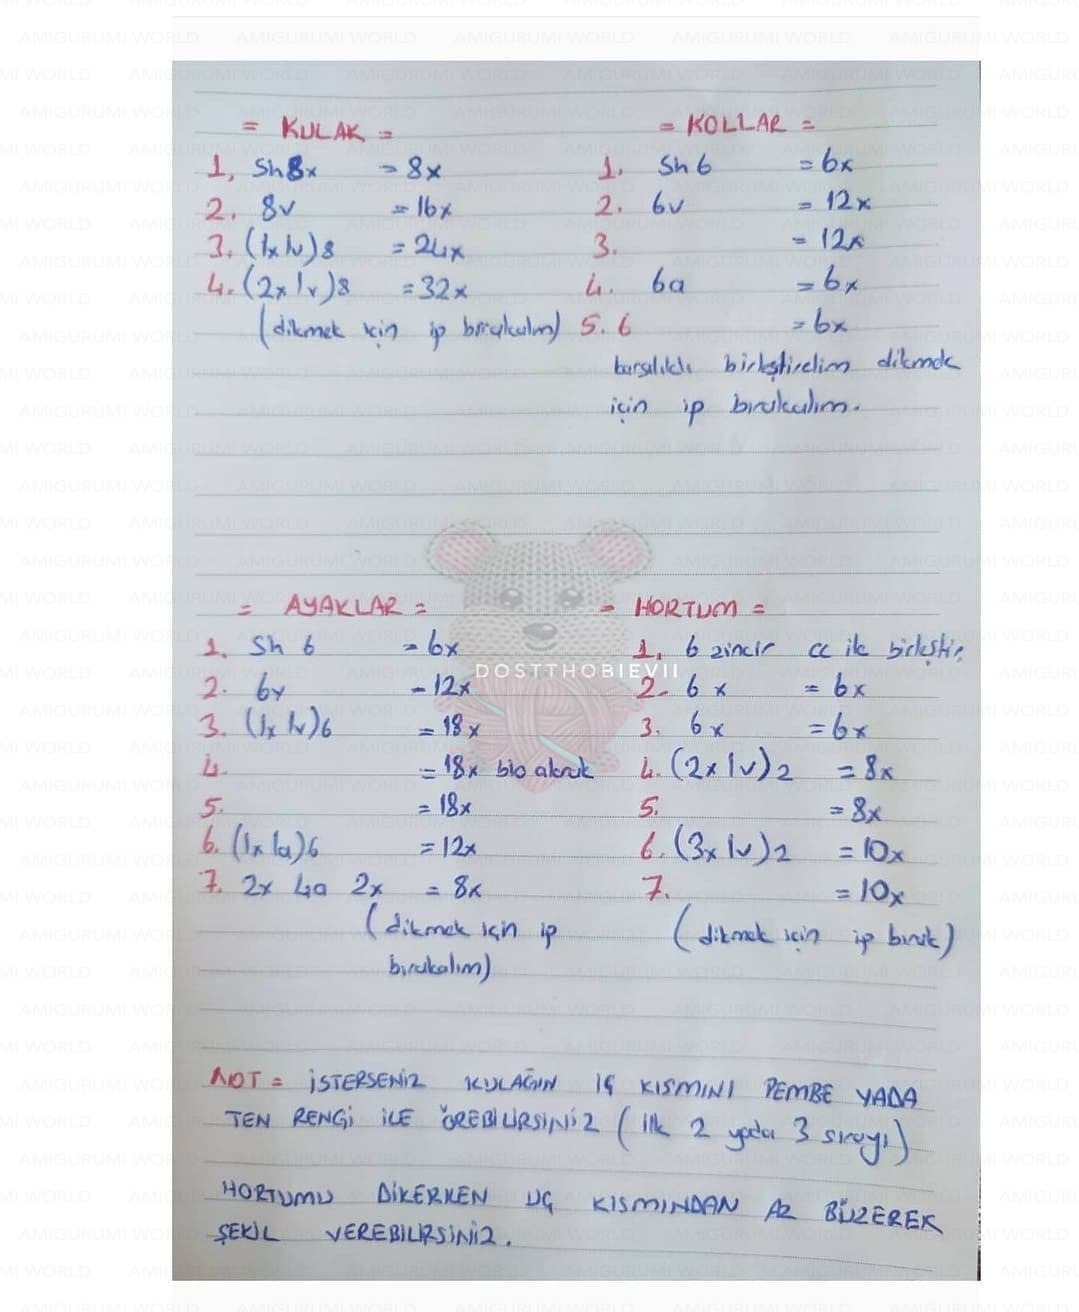 = KULAK =
1. Sh 8x = 8x
2. 8v = 16x
3. (1x 1v)8 = 24x
4. (2x 1v)8 = 32x
(dikmek için ip bırakalım)
= KOLLAR =
1. Sh 6 = 6x
2. 6v = 12x
3. = 12x
4. 6a = 6x
5. 6 = 6x
karşılıklı birleştirelim dikmek
için ip bırakalım.
= AYAKLAR =
1. Sh 6 = 6x
2. 6v = 12x
3. (1x 1v)6 = 18x
4. = 18x blo alarak
5. = 18x
6. (1x 1a)6 = 12x
7. 2x 4a 2x = 8x
(dikmek için ip
bırakalım)
= HORTUM =
1. 6 zincir cc ile birleştir.
2. 6x = 6x
3. 6x = 6x
4. (2x 1v)2 = 8x
5. = 8x
6. (3x 1v)2 = 10x
7. = 10x
(dikmek için ip bırak)
DOSTTHOBIEVII
NOT = İSTERSENİZ KULAĞIN İÇ KISMINI PEMBE YADA
TEN RENGİ İLE ÖREBİLİRSİNİZ (ilk 2 yada 3 sırayı)
HORTUMU DİKERKEN UÇ KISMINDAN AZ BÜZEREK
ŞEKİL VEREBİLİRSİNİZ.
AMIGURUMI WORLD